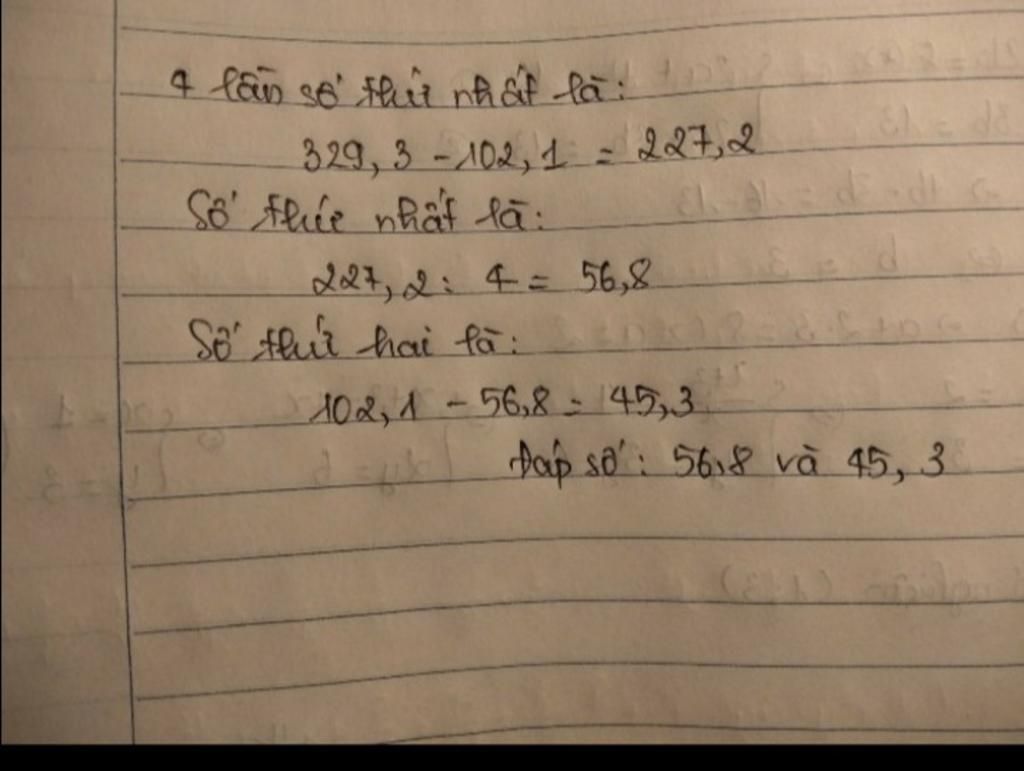 4 lần số thứ nhất là:
329,3 - 102,1 = 227,2
Số thứ nhất là:
227,2 : 4 = 56,8
Số thứ hai là:
102,1 - 56,8 = 45,3
Đáp số: 56,8 và 45,3